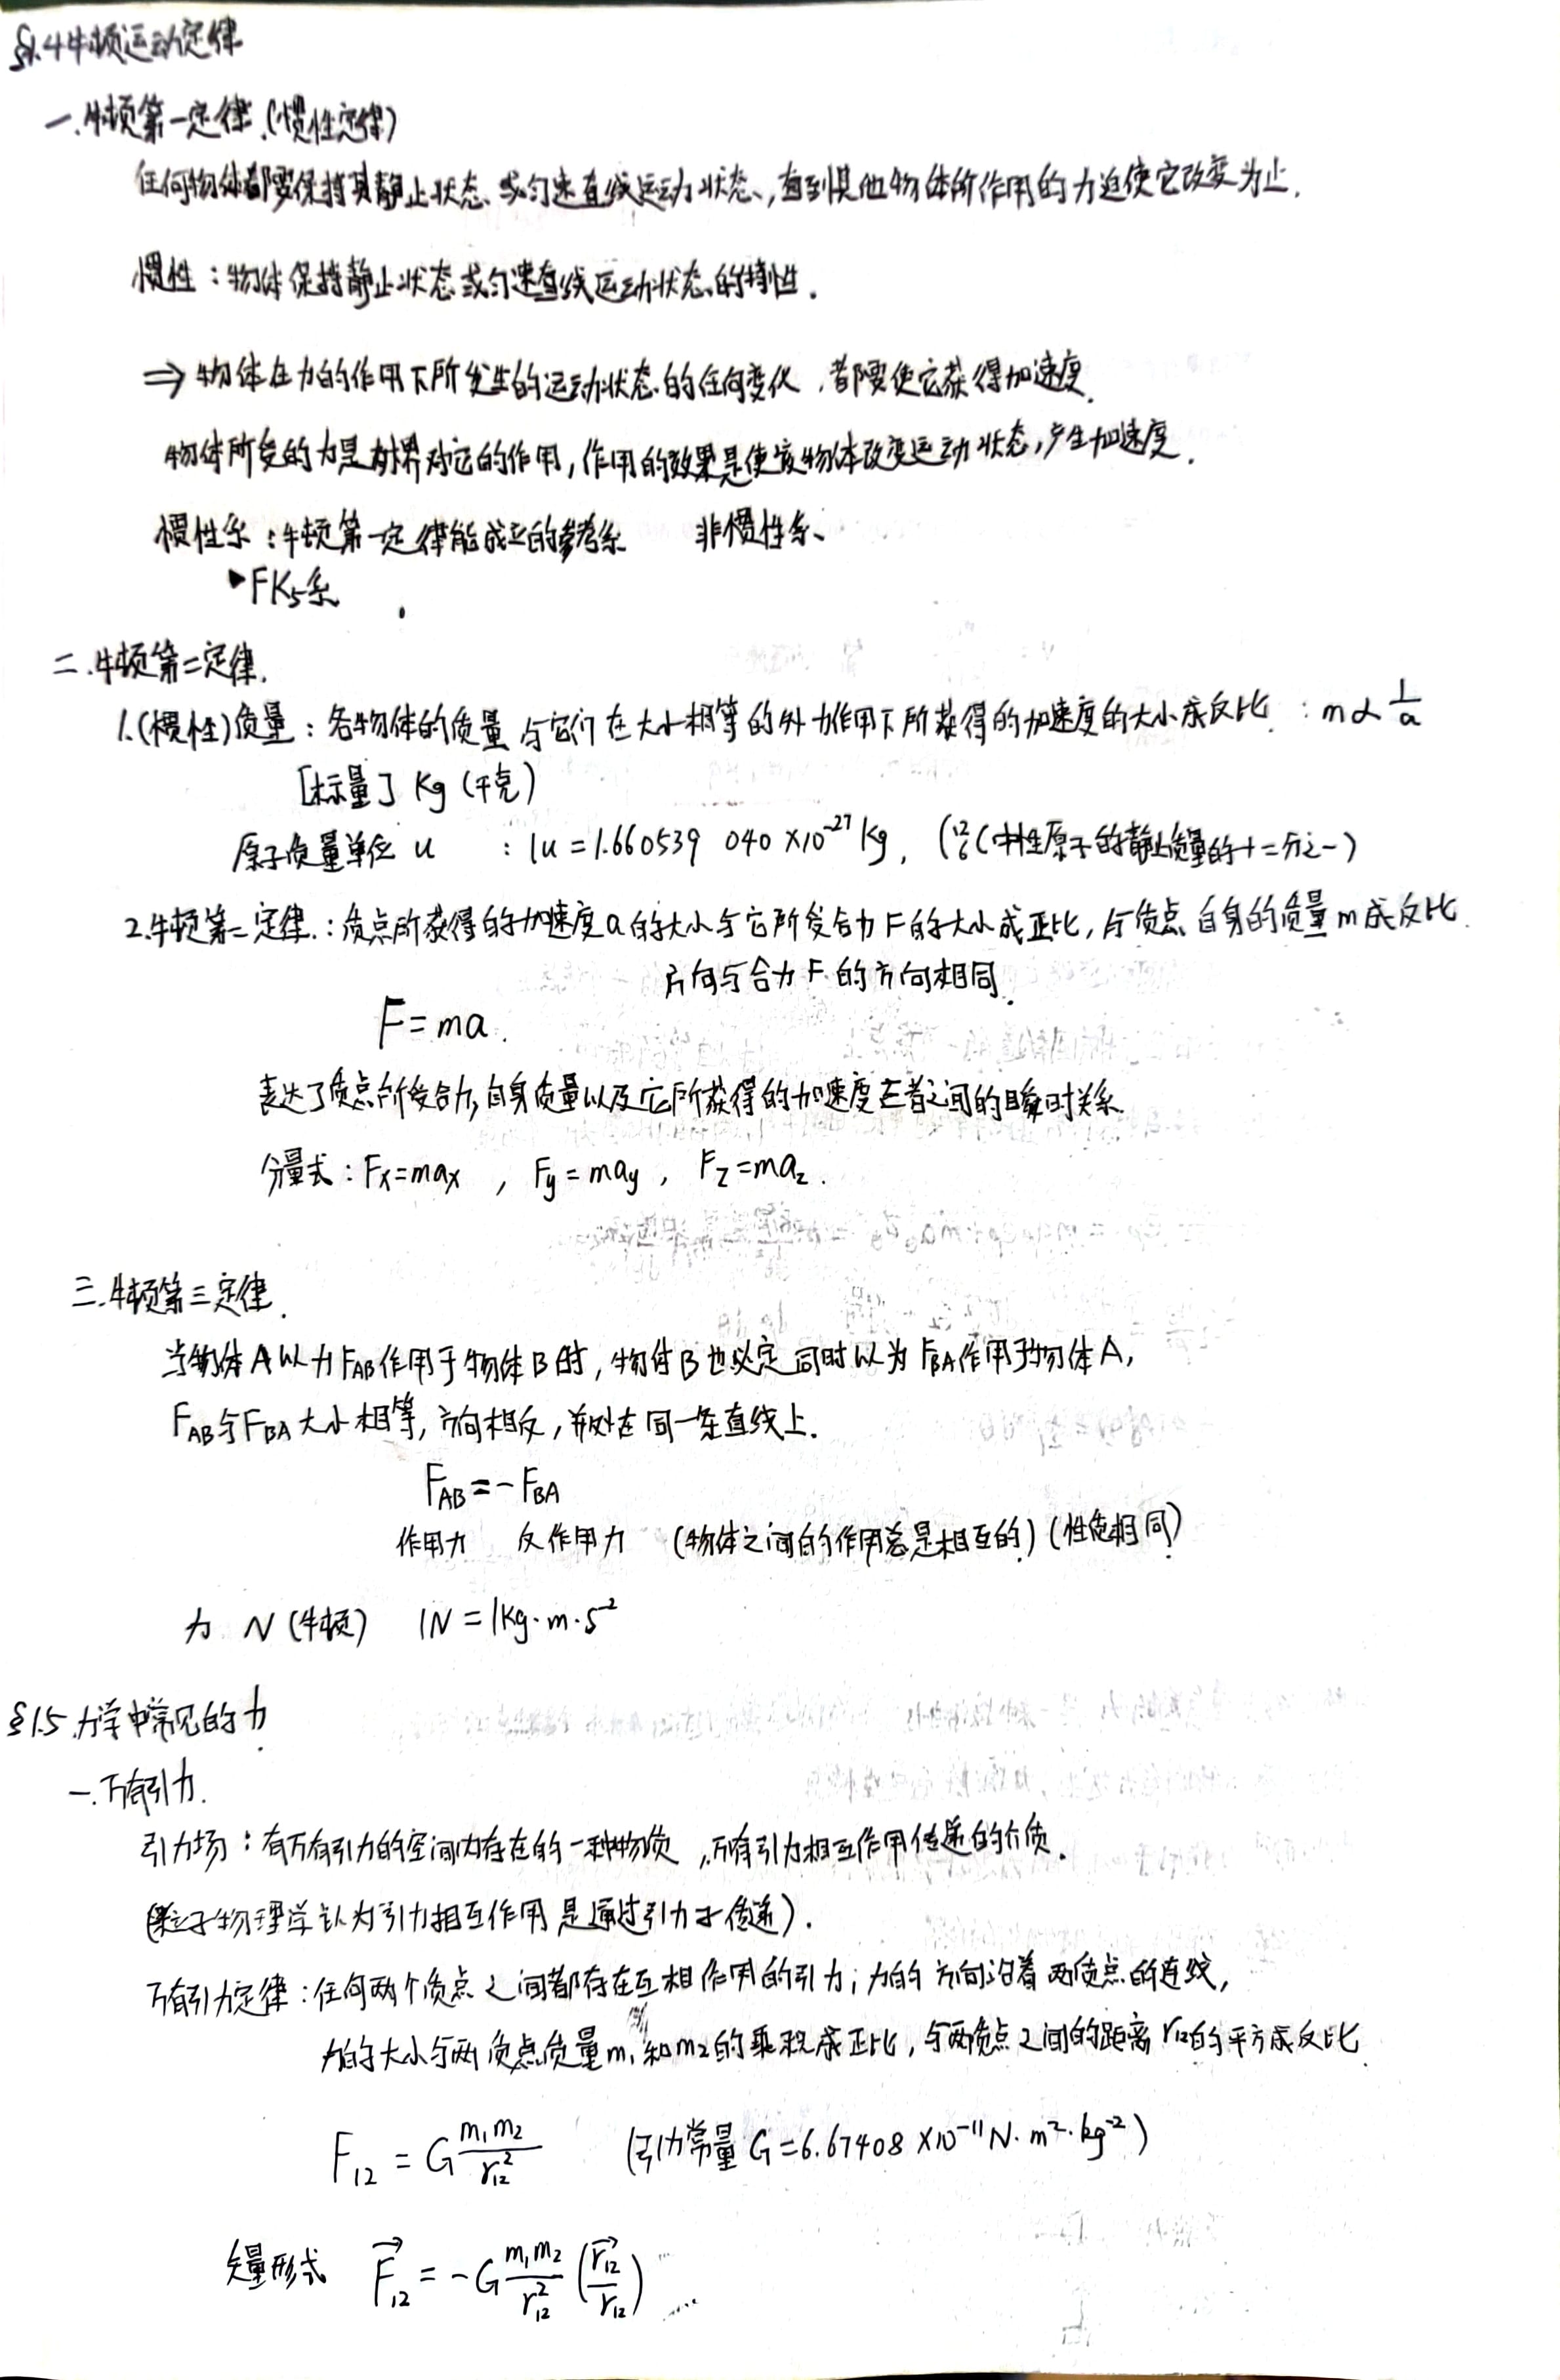 §1.4牛顿运动定律
一.牛顿第一定律.(惯性定律)
任何物体都要保持其静止状态、或匀速直线运动状态,直到其他物体所作用的力迫使它改变为止.
惯性:物体保持静止状态或匀速直线运动状态的特性.
⇒物体在力的作用下所发生的运动状态的任何变化,都要使它获得加速度.
物体所受的力是外界对它的作用,作用的效果是使该物体改变运动状态,产生加速度.
惯性系:牛顿第一定律能成立的参考系 非惯性系
▶FK5系
二.牛顿第二定律.
1.(惯性)质量:各物体的质量与它们在大小相等的外力作用下所获得的加速度的大小成反比. : m∝1/a
[标量] kg (千克)
原子质量单位 u :1u=1.660539 040×10⁻²⁷kg, (¹²₆C中性原子的静止质量的十二分之一)
2.牛顿第二定律.:质点所获得的加速度a的大小与它所受合力F的大小成正比,与质点自身的质量m成反比.
方向与合力F的方向相同.
F=ma.
表达了质点所受合力,自身质量以及它所获得的加速度三者之间的瞬时关系.
分量式:Fx=max , Fy=may , Fz=maz.
三.牛顿第三定律.
当物体A以力FAB作用于物体B时,物体B也必定同时以为FBA作用于物体A,
FAB与FBA大小相等,方向相反,并处在同一条直线上.
FAB=-FBA
作用力 反作用力 (物体之间的作用总是相互的)(性质相同)
力 N (牛顿) 1N=1kg·m·s⁻²
§1.5.力学中常见的力.
一.万有引力.
引力场:有万有引力的空间内存在的一种物质,万有引力相互作用传递的介质.
(粒子物理学认为引力相互作用是通过引力子传递).
万有引力定律:任何两个质点之间都存在互相作用的引力;力的方向沿着两质点的连线,
力的大小与两质点质量m₁和m₂的乘积成正比,与两质点之间的距离r₁₂的平方成反比.
F₁₂=G m₁m₂/r₁₂² (引力常量G=6.67408×10⁻¹¹N·m²·kg⁻²)
矢量形式 F⃗₁₂=-G m₁m₂/r₁₂² (r⃗₁₂/r₁₂)